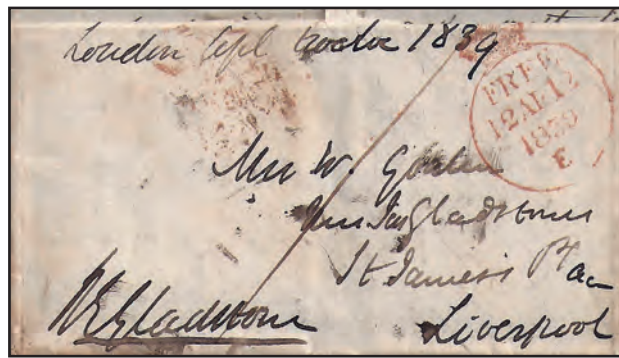 London Apl twelve 1839
FREE
12 AP 12
1839
E
Mrs W.
Gladstone
St James's Place
Liverpool
WEGladstone